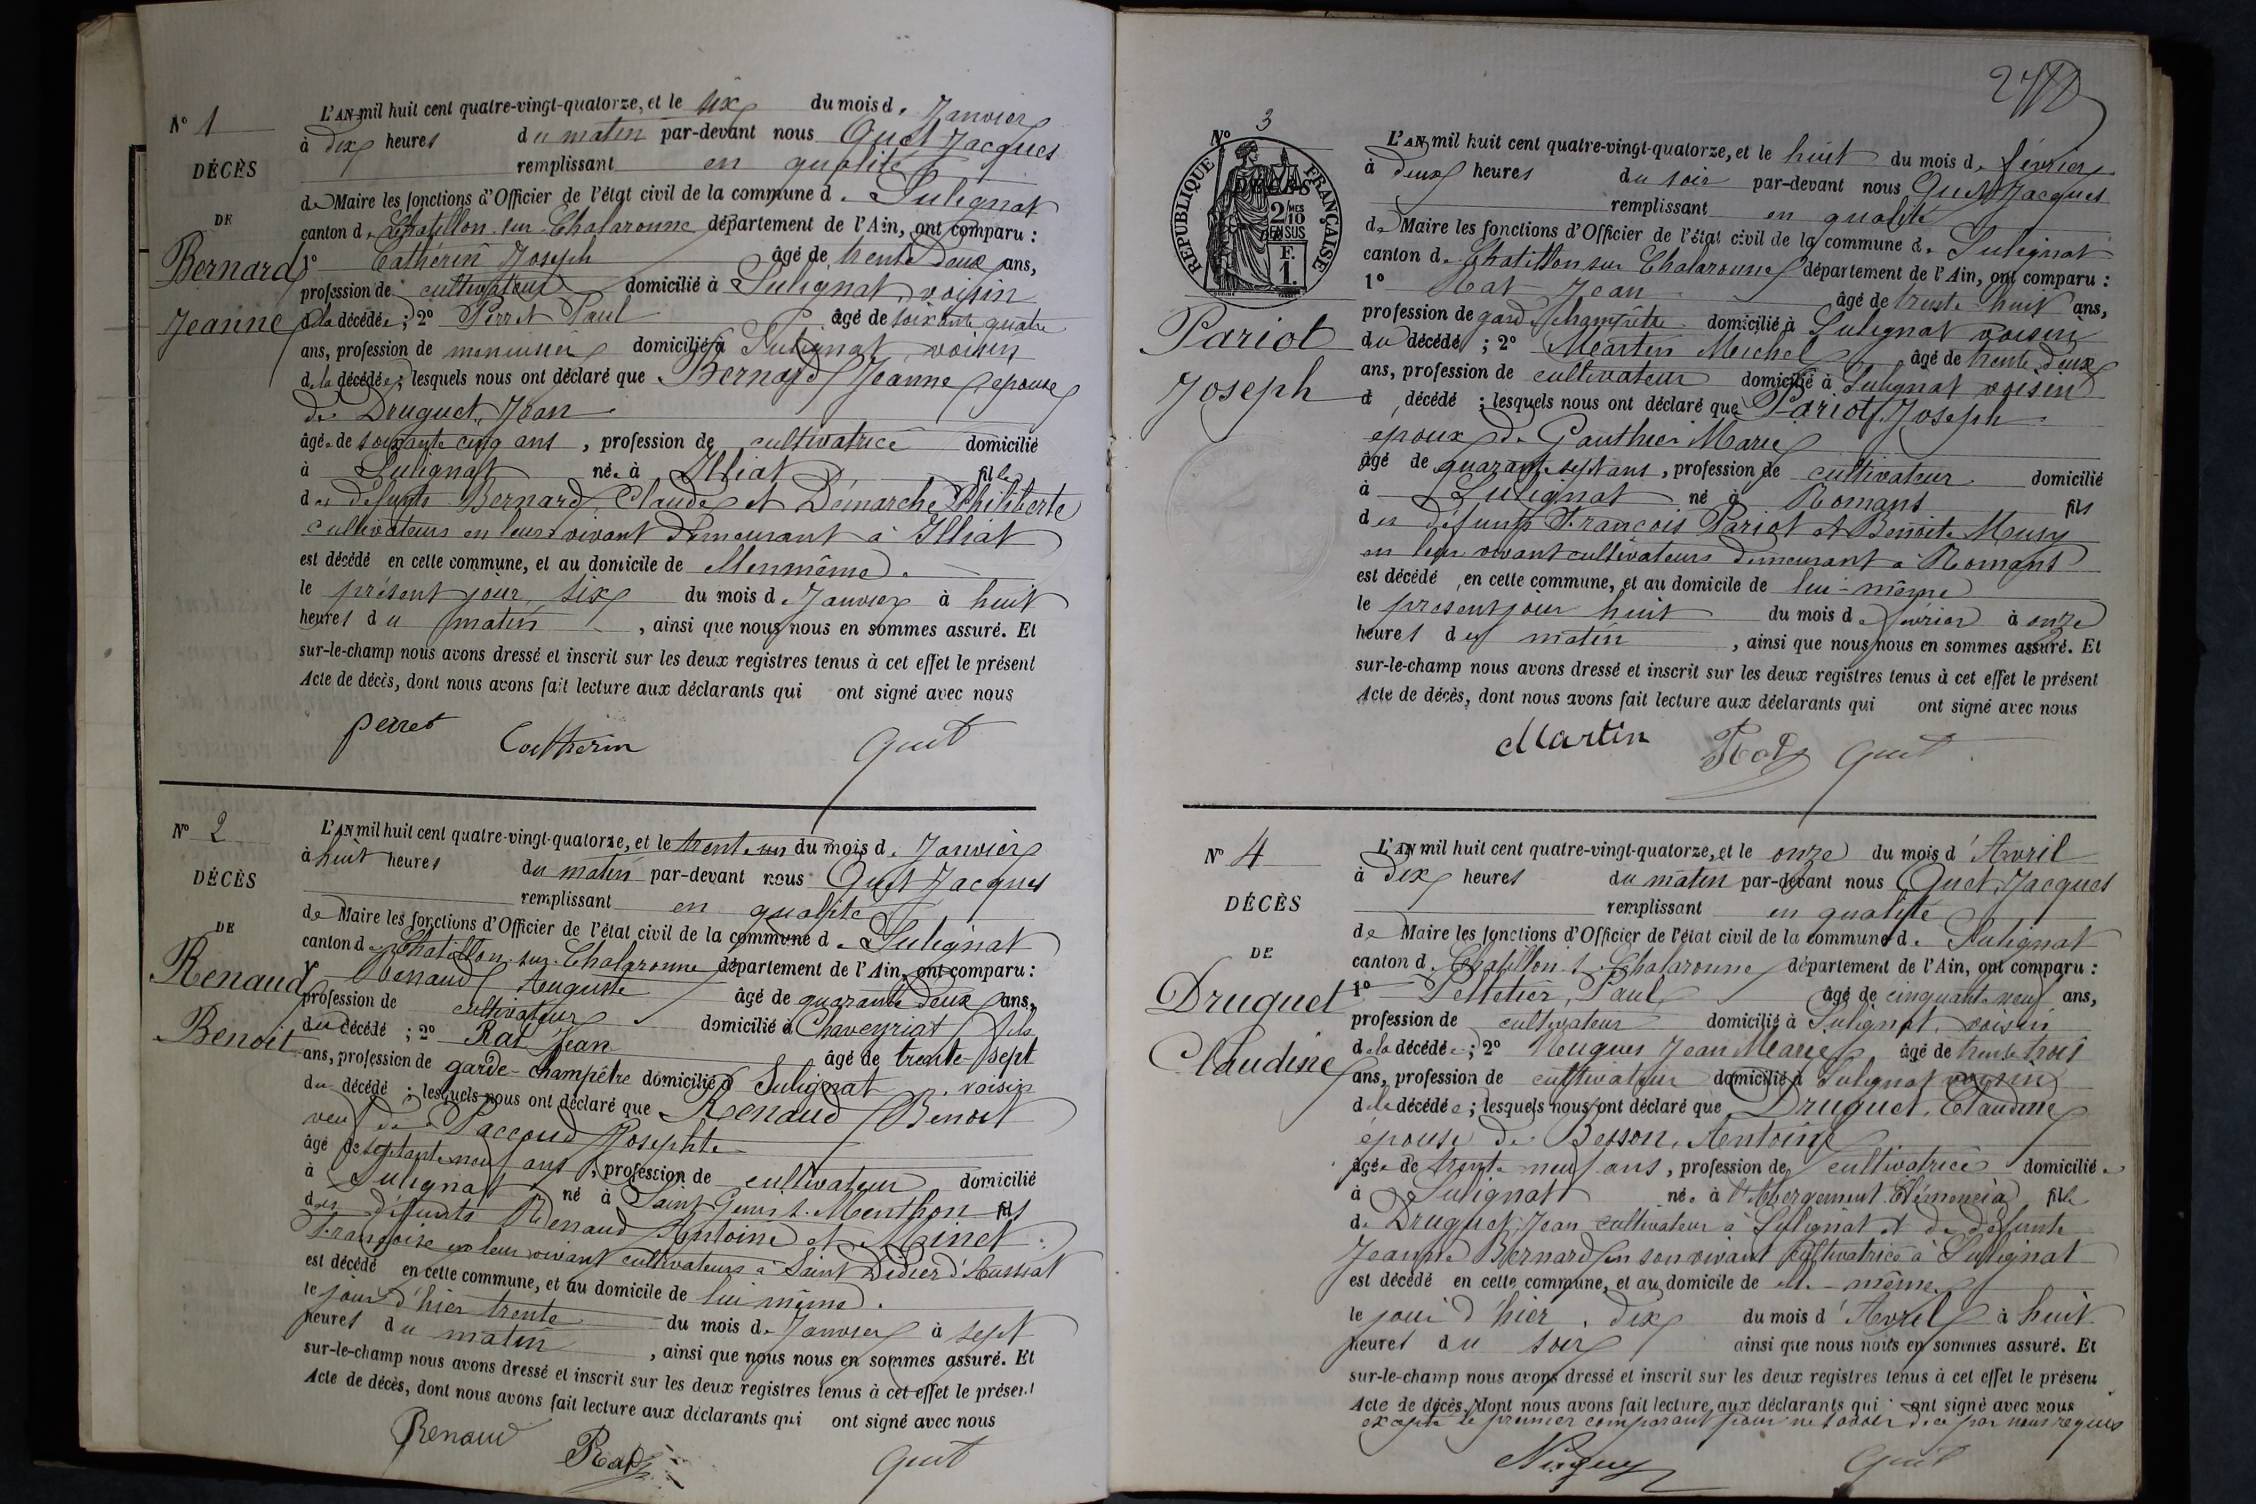 N° 1
DÉCÈS
DE
Bernard
Jeanne
L'AN mil huit cent quatre-vingt-quatorze, et le six du mois de Janvier
à dix heures du matin par-devant nous Quet Jacques
remplissant en qualité
de Maire les fonctions d'Officier de l'état civil de la commune de Sulignat
canton de Chatillon sur Chalaronne département de l'Ain, ont comparu :
1° Cathérin Joseph âgé de trente deux ans,
profession de cultivateur domicilié à Sulignat voisin
de la décédée ; 2° Perret Paul âgé de soixante quatre
ans, profession de menuisier domicilié à Sulignat, voisin
de la décédée ; lesquels nous ont déclaré que Bernard Jeanne, épouse
de Druguet, Jean
âgée de soixante cinq ans, profession de cultivatrice domicilié
à Sulignat née à Illiat fille
des défunts Bernard, Claude et Démarche Philiberte
cultivateurs en leur vivant demeurant à Illiat
est décédé en cette commune, et au domicile de
le présent jour six du mois de Janvier à huit
heures du matin, ainsi que nous nous en sommes assuré. Et
sur-le-champ nous avons dressé et inscrit sur les deux registres tenus à cet effet le présent
Acte de décès, dont nous avons fait lecture aux déclarants qui ont signé avec nous
Perret Cathérin Quet
N° 2
DÉCÈS
DE
Renaud
Benoit
L'AN mil huit cent quatre-vingt-quatorze, et le trente un du mois de Janvier
à huit heures du matin par-devant nous Quet Jacques
remplissant en qualité
de Maire les fonctions d'Officier de l'état civil de la commune de Sulignat
canton de Chatillon sur Chalaronne département de l'Ain, ont comparu :
1° Renaud Auguste âgé de quarante deux ans,
profession de cultivateur domicilié à Chaveyriat fils
du décédé ; 2° Rat Jean âgé de trente sept
ans, profession de garde-champêtre domicilié à Sulignat, voisin
du décédé ; lesquels nous ont déclaré que Renaud Benoit
veuf de Paccoud Josephte
âgé de septante neuf ans, profession de cultivateur domicilié
à Sulignat né à Saint Genis s. Menthon fils
des défunts Renaud Antoine et Moinet
Françoise en leur vivant cultivateurs à Saint Didier d'Aussiat
est décédé en cette commune, et au domicile de lui même.
le jour d'hier trente du mois de Janvier à sept
heures du matin, ainsi que nous nous en sommes assuré. Et
sur-le-champ nous avons dressé et inscrit sur les deux registres tenus à cet effet le présent
Acte de décès, dont nous avons fait lecture aux déclarants qui ont signé avec nous
Renaud Rat Quet
N° 3
RÉPUBLIQUE FRANÇAISE
2/10 MES
EN SUS
F.
1.
Pariot
Joseph
L'AN mil huit cent quatre-vingt-quatorze, et le huit du mois de février
à deux heures du soir par-devant nous Quet Jacques
remplissant en qualité
de Maire les fonctions d'Officier de l'état civil de la commune de Sulignat
canton de Chatillon sur Chalaronne département de l'Ain, ont comparu :
1° Rat Jean âgé de trente huit ans,
profession de garde champêtre domicilié à Sulignat voisin
du décédé ; 2° Martin Michel âgé de trente deux
ans, profession de cultivateur domicilié à Sulignat voisin
d décédé ; lesquels nous ont déclaré que Pariot, Joseph
époux de Gauthier Marie
âgé de quarante sept ans, profession de cultivateur domicilié
à Sulignat né à Romans fils
des défunts François Pariot et Benoite
en leur vivant cultivateurs demeurant à Romans
est décédé en cette commune, et au domicile de lui-même
le présent jour huit du mois de février à onze
heures du matin, ainsi que nous nous en sommes assuré. Et
sur-le-champ nous avons dressé et inscrit sur les deux registres tenus à cet effet le présent
Acte de décès, dont nous avons fait lecture aux déclarants qui ont signé avec nous
Martin Rat Quet
N° 4
DÉCÈS
DE
Druguet
Claudine
L'AN mil huit cent quatre-vingt-quatorze, et le onze du mois d'Avril
à dix heures du matin par-devant nous Quet, Jacques
remplissant en qualité
de Maire les fonctions d'Officier de l'état civil de la commune de Sulignat
canton de Chatillon s. Chalaronne département de l'Ain, ont comparu :
1° Pelletier, Paul âgé de cinquante neuf ans,
profession de cultivateur domicilié à Sulignat, voisin
de la décédée ; 2° Jean Marie âgé de trente trois
ans, profession de cultivateur domicilié à Sulignat voisin
de la décédée ; lesquels nous ont déclaré que Druguet, Claudine
épouse de Besson, Antoine
âgée de trente neuf ans, profession de cultivatrice domiciliée
à Sulignat née à l'Abergement Clémencia fille
de Druguet Jean cultivateur à Sulignat et de défunte
Jeanne Bernard en son vivant cultivatrice à Sulignat
est décédé en cette commune, et au domicile de elle-même
le jour d'hier, dix du mois d'Avril à huit
heures du soir ainsi que nous nous en sommes assuré. Et
sur-le-champ nous avons dressé et inscrit sur les deux registres tenus à cet effet le présent
Acte de décès, dont nous avons fait lecture aux déclarants qui ont signé avec nous
excepté le premier comparant pour ne savoir de ce par nous requis
Quet